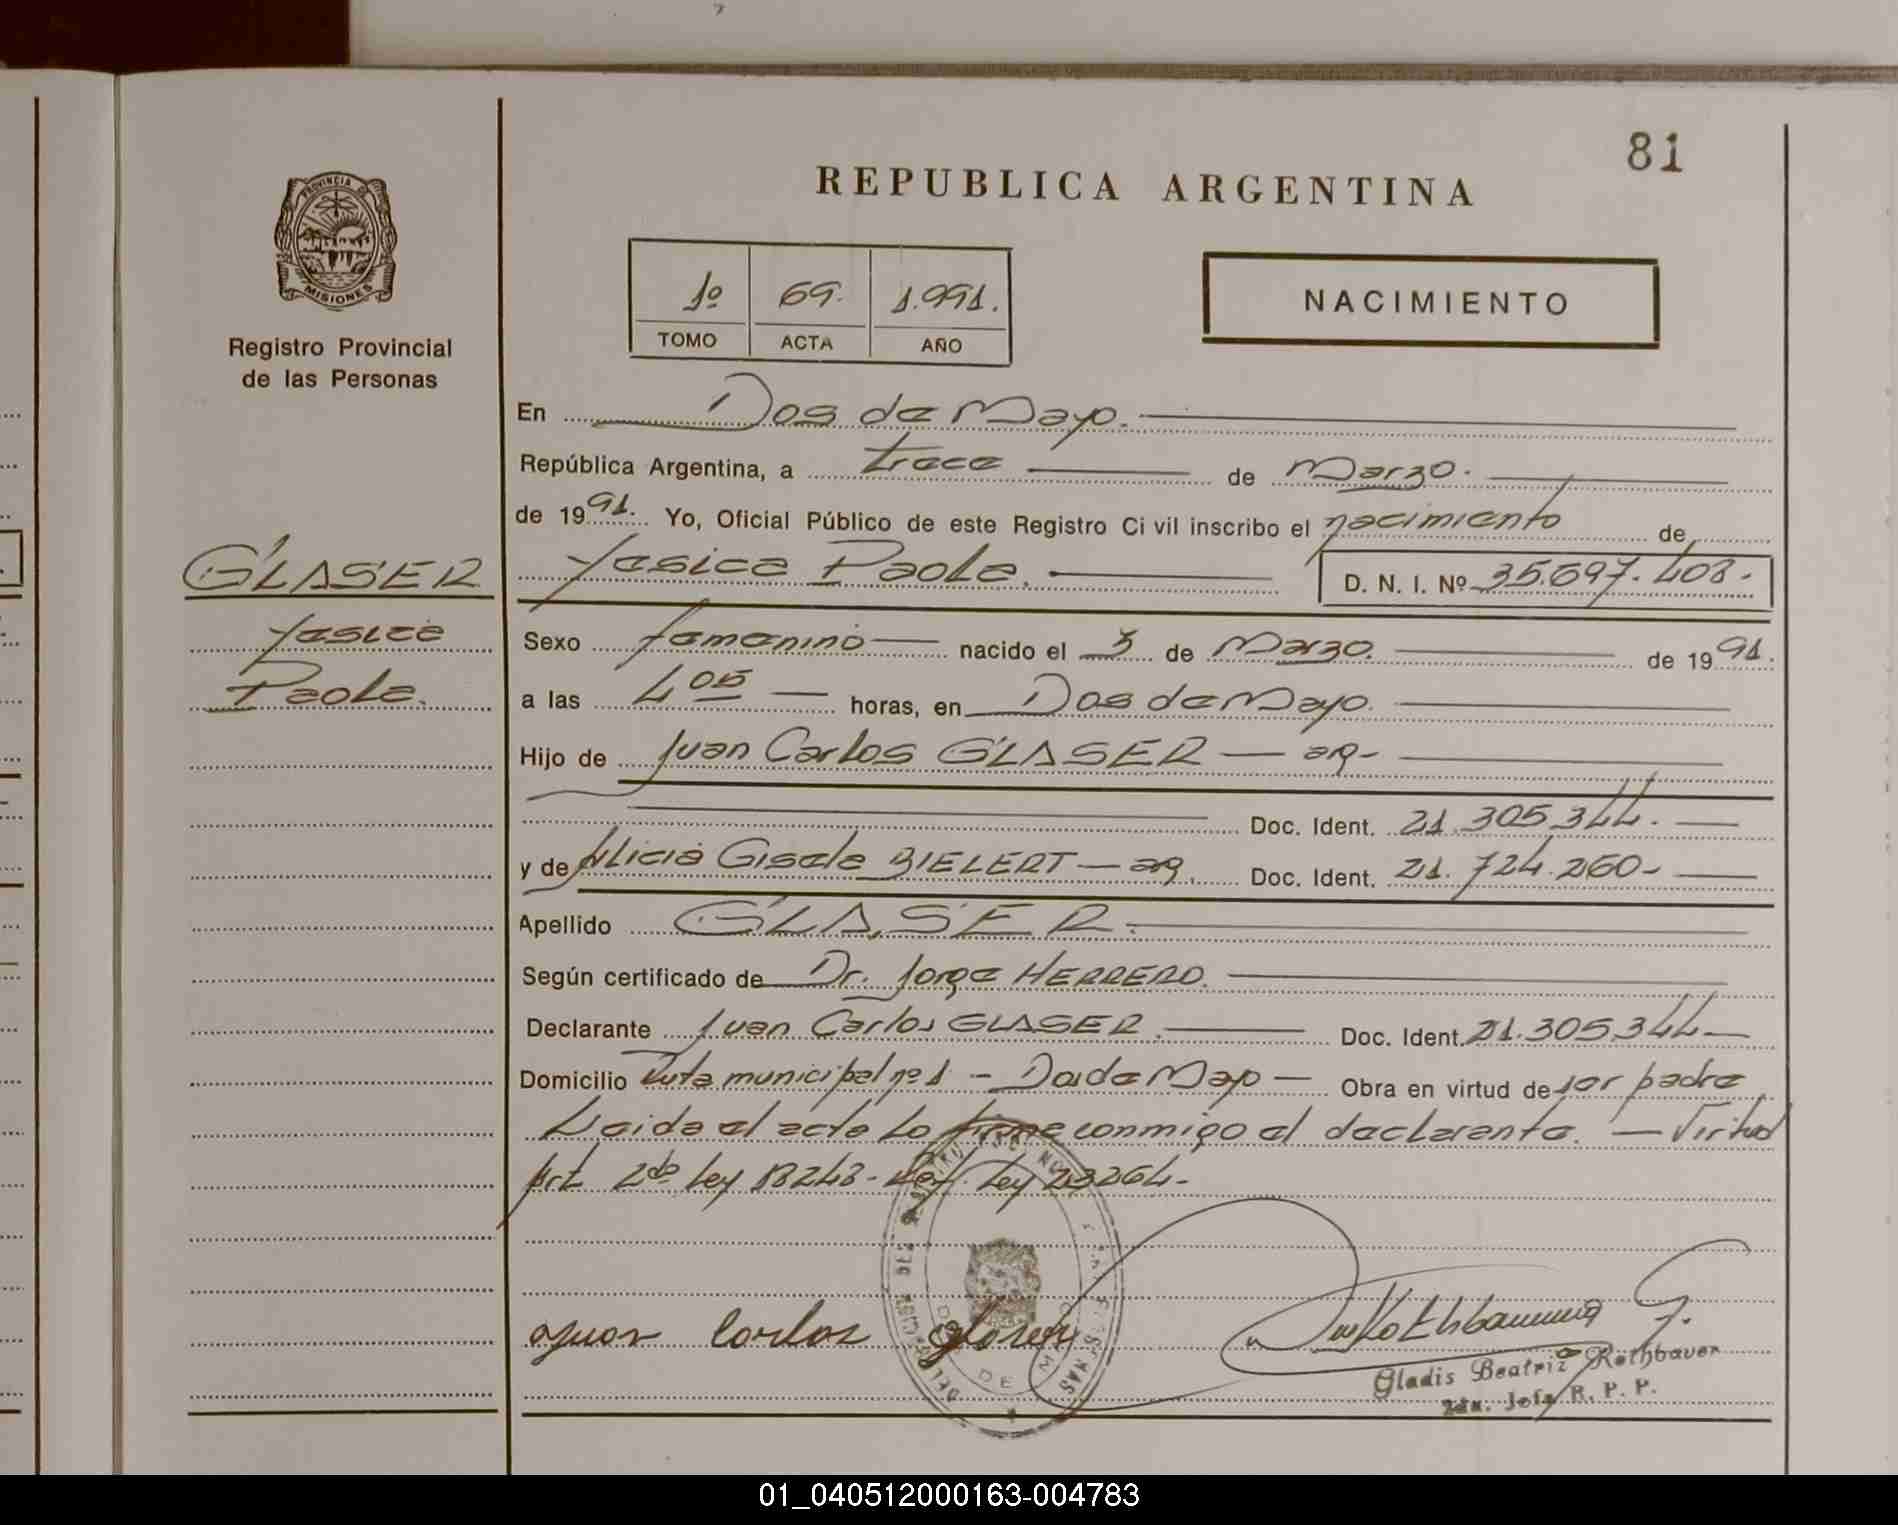 81
REPUBLICA ARGENTINA
PROVINCIA DE
MISIONES
Registro Provincial
de las Personas
1º 69. 1.991.
TOMO ACTA AÑO
NACIMIENTO
En Dos de Mayo.
República Argentina, a trece de Marzo.
de 1991. Yo, Oficial Público de este Registro Civil inscribo el nacimiento de
GLASER
Yesica Paola. D. N. I. Nº 35.697.408.-
Yesica
Paola.
Sexo femenino nacido el 3 de Marzo. de 1991.
a las 4 05 horas, en Dos de Mayo.
Hijo de Juan Carlos GLASER — arg-
Doc. Ident. 21.305.344.-
y de Alicia Gisela BIELERT — arg. Doc. Ident. 21.724.260-
Apellido GLASER.
Según certificado de Dr. Jorge HERRERO.
Declarante Juan Carlos GLASER. Doc. Ident. 21.305.344-
Domicilio Ruta municipal nº 1 - Dos de Mayo - Obra en virtud de ser padre
Leida el acta la firma conmigo el declarante. — Virtud
Art 2do ley 18248- ley 23264-
Juan Carlos Glaser
Gladis Beatriz Rothbauer
2da. Jefa R. P. P.
01_040512000163-004783